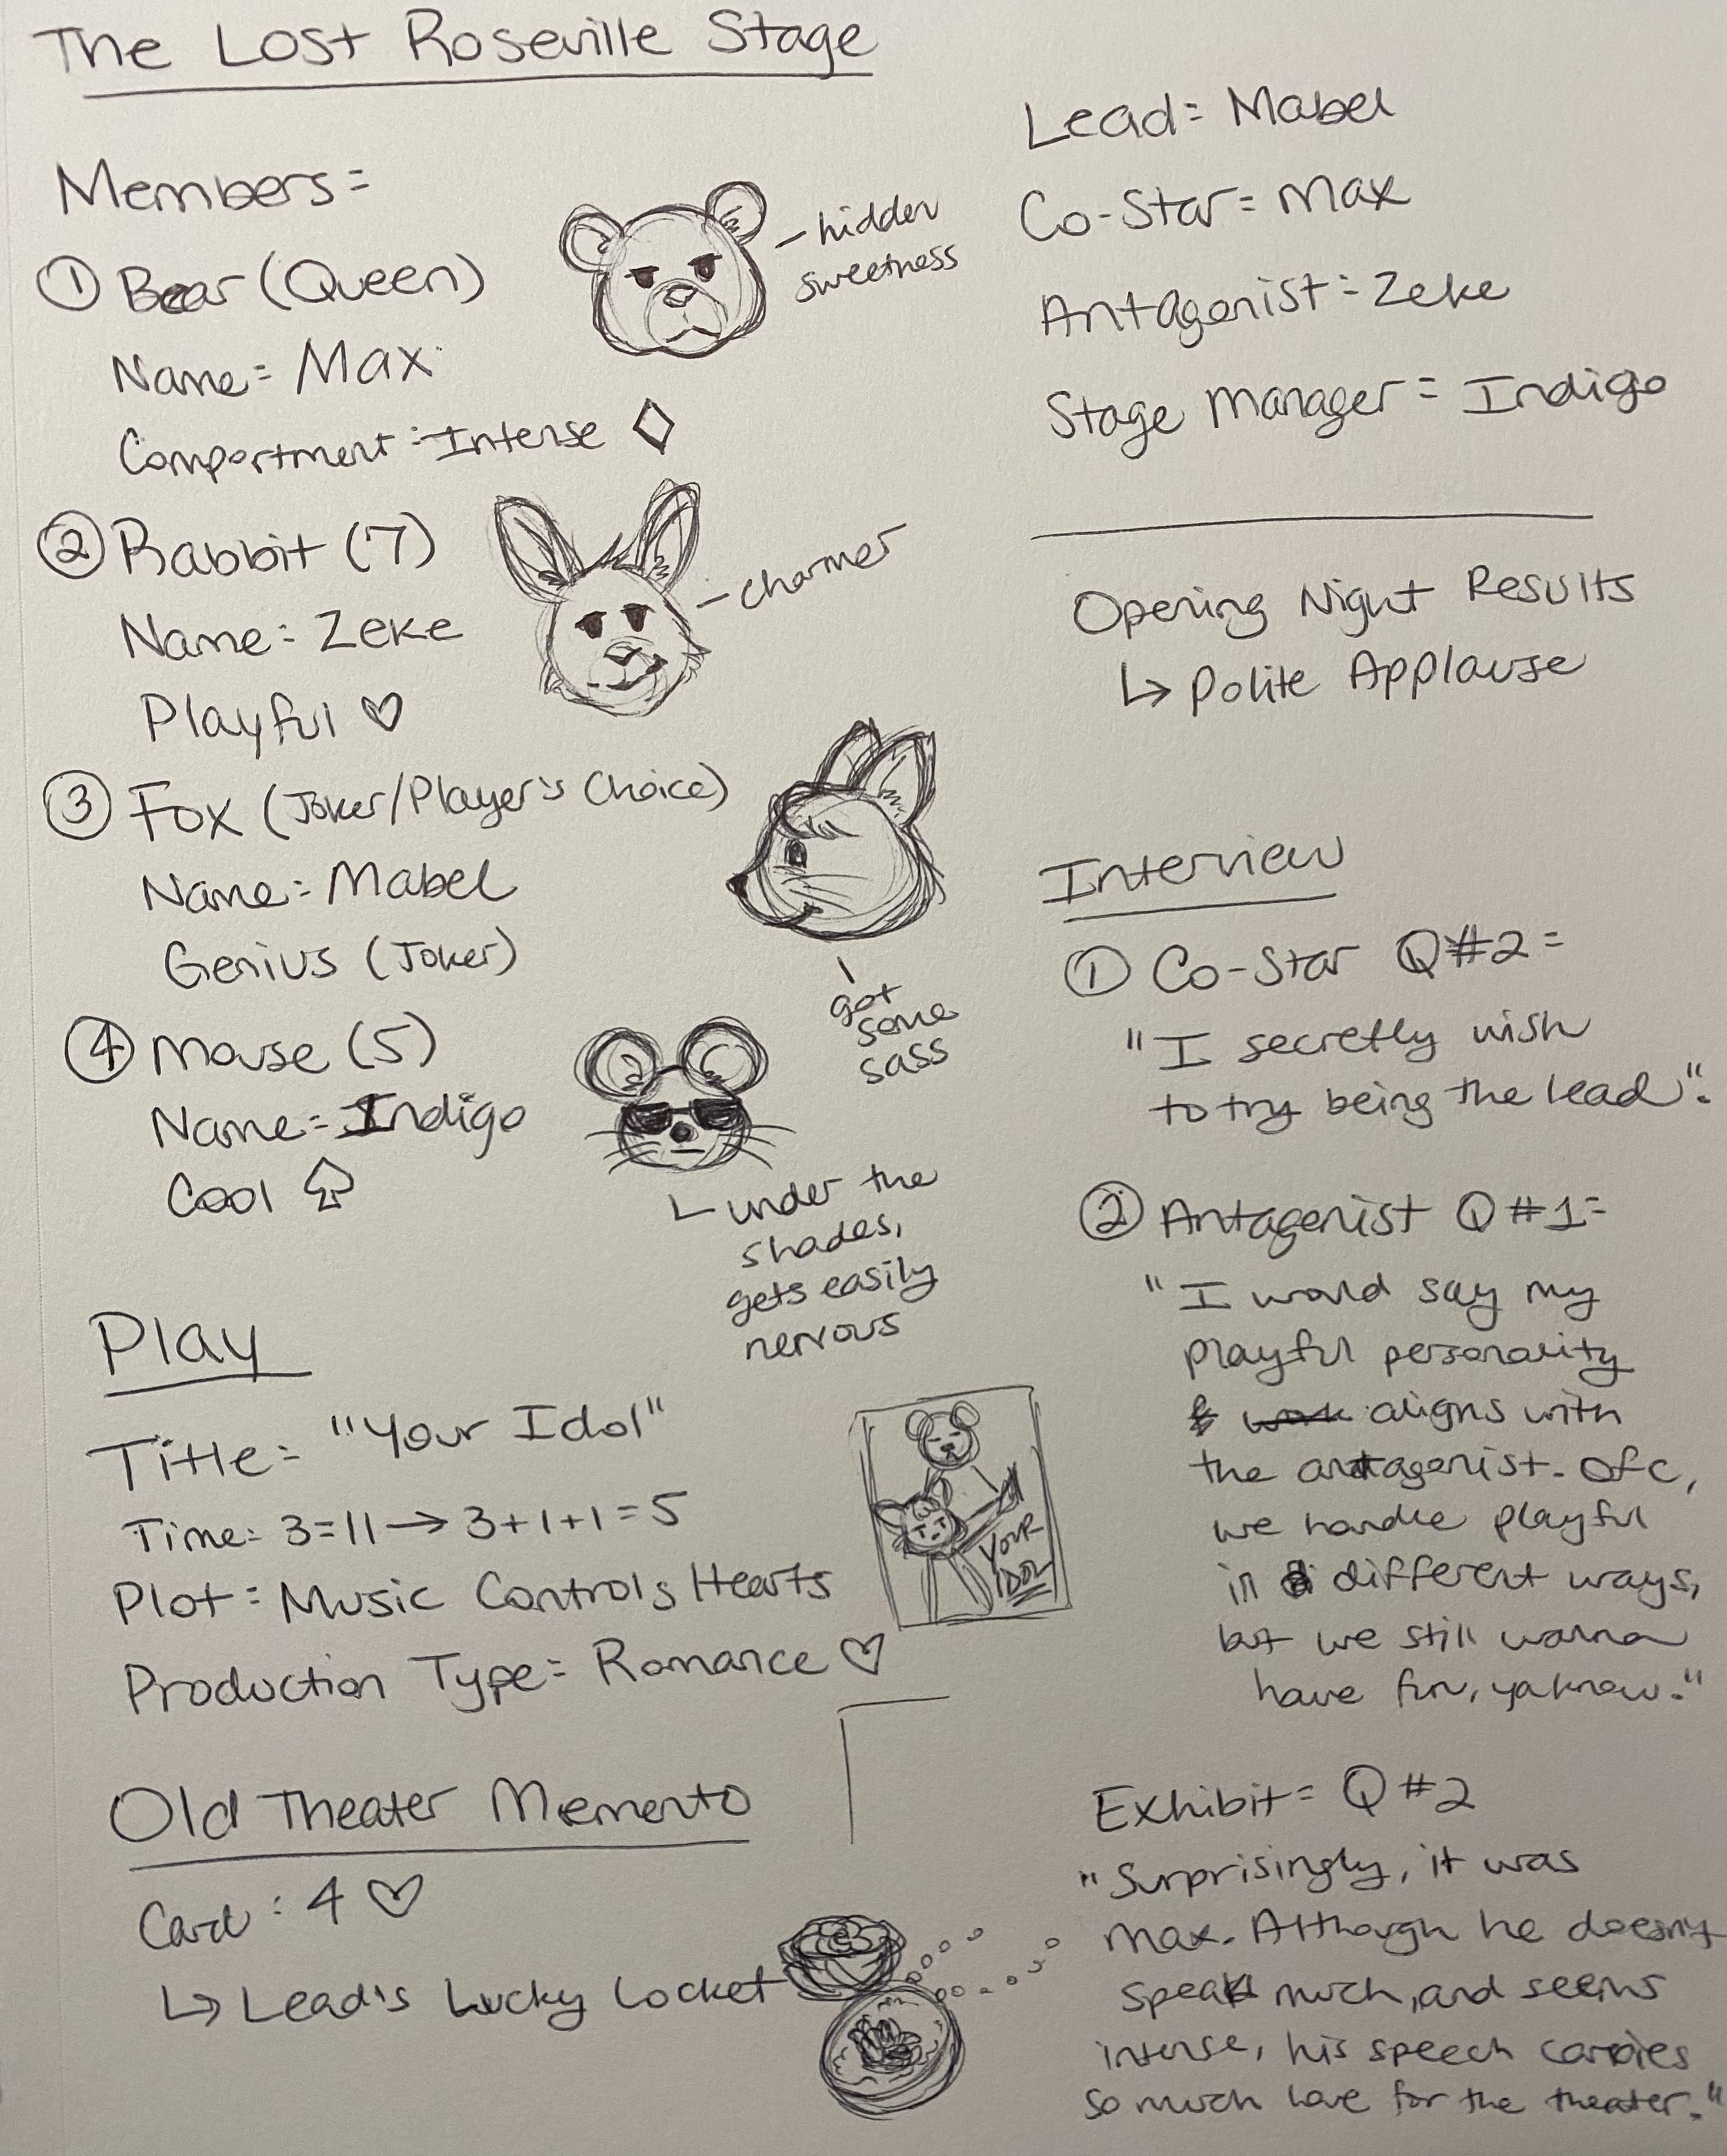 The Lost Roseville Stage
Members=
① Bear (Queen)
Name= Max
Compartment: Intense ♢
- hidden
sweetness
② Rabbit (7)
Name= Zeke
Playful ♡
- charmer
③ Fox (Joker/Player's Choice)
Name= Mabel
Genius (Joker)
got
some
sass
④ Mouse (5)
Name= Indigo
Cool ♤
under the
shades,
gets easily
nervous
Play
Title= "Your Idol"
Time= 3=11 → 3+1+1=5
Plot= Music Controls Hearts
Production Type= Romance ♡
YOUR
IDOL
Old Theater Memento
Card: 4 ♡
↳ Lead's Lucky Locket
Lead= Mabel
Co-Star= Max
Antagonist= Zeke
Stage Manager= Indigo
Opening Night Results
↳ Polite Applause
Interview
① Co-Star Q#2=
"I secretly wish
to try being the lead".
② Antagonist Q#1=
"I would say my
playful personality
aligns with
the antagonist. Ofc,
we handle playful
in different ways,
but we still wanna
have fun, yaknow."
Exhibit= Q#2
"Surprisingly, it was
Max. Although he doesn't
speak much, and seems
intense, his speech carries
so much love for the theater."